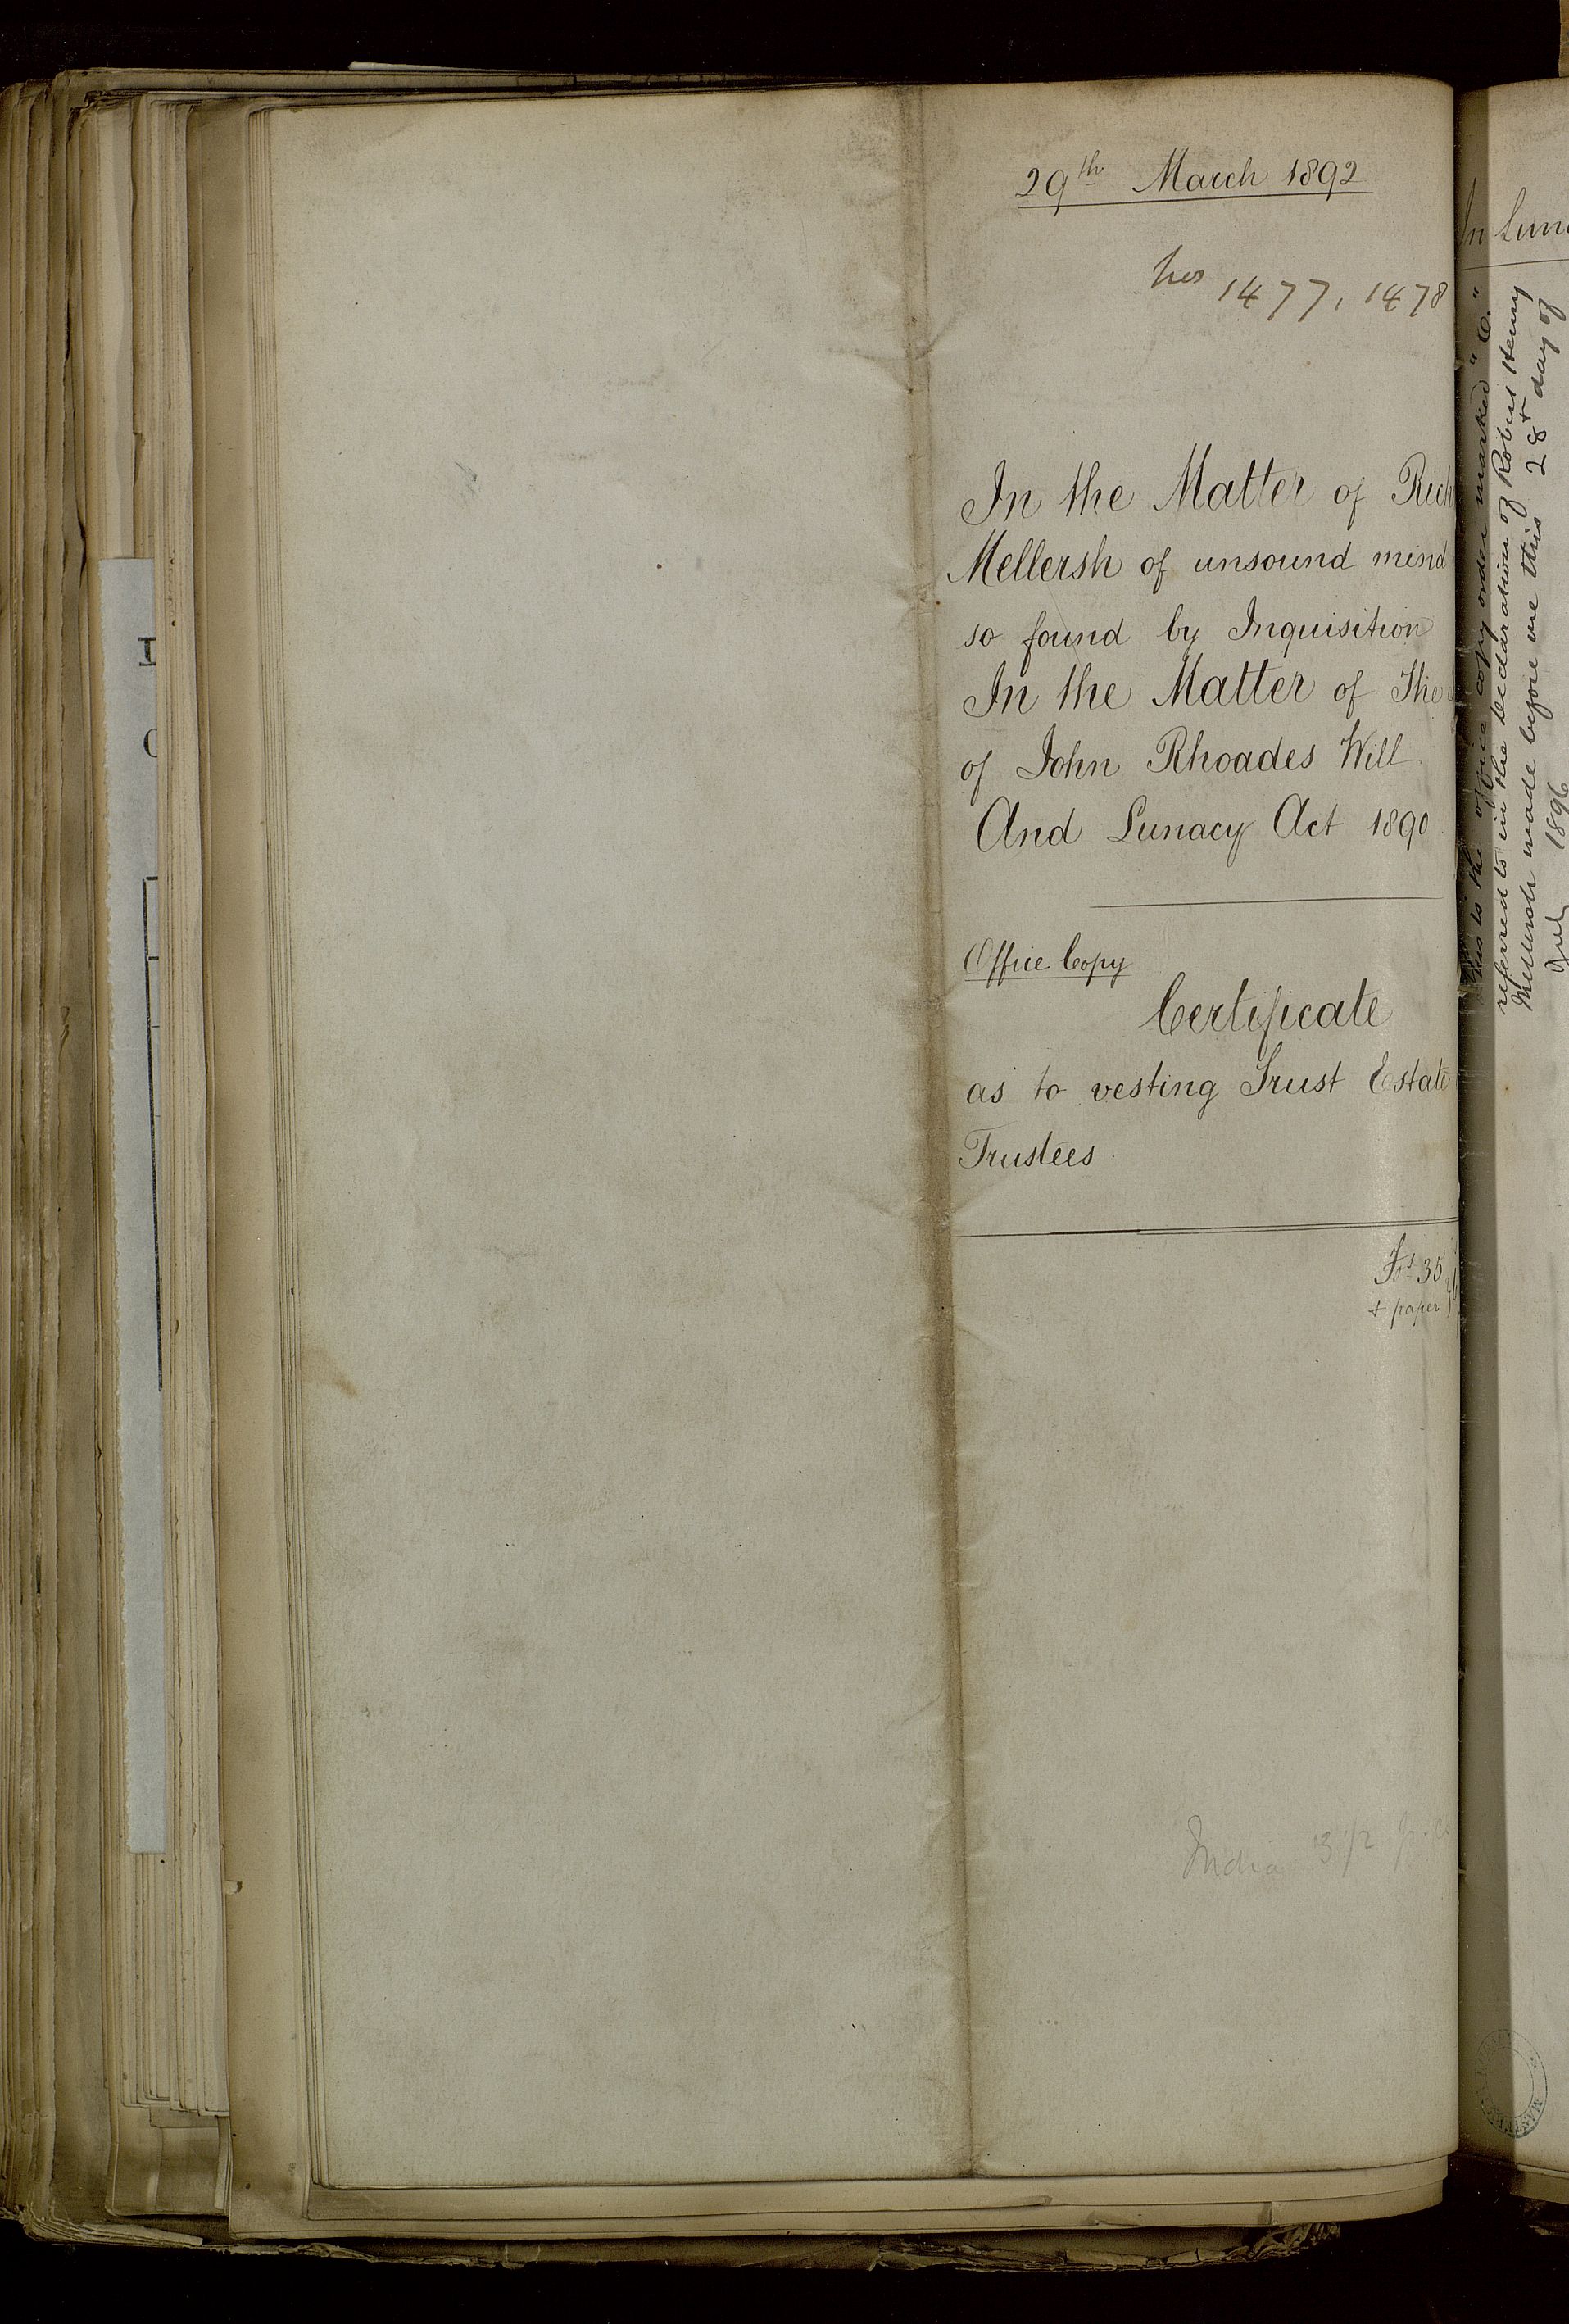 29th March 1892
Nos 1477, 1478
In the Matter of Rich
Mellersh of unsound mind
so found by Inquisition
In the Matter of The
of John Rhoades Will
And Lunacy Act 1890
Office Copy
Certificate
as to vesting Trust Estate
Trustees
Fos 35
& paper
India 3 1/2
In Luna
This is the office copy order marked "C."
referred to in the declaration of Robert Henry
Mellersh made before me this 28th day of
July 1896